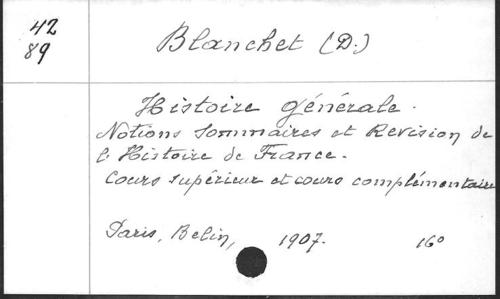 42
89
Blanchet (D.)
Histoire générale.
Notions sommaires et Revision de
l'Histoire de France.
Cours supérieur et cours complémentaire
Paris, Belin, 1907. 16º